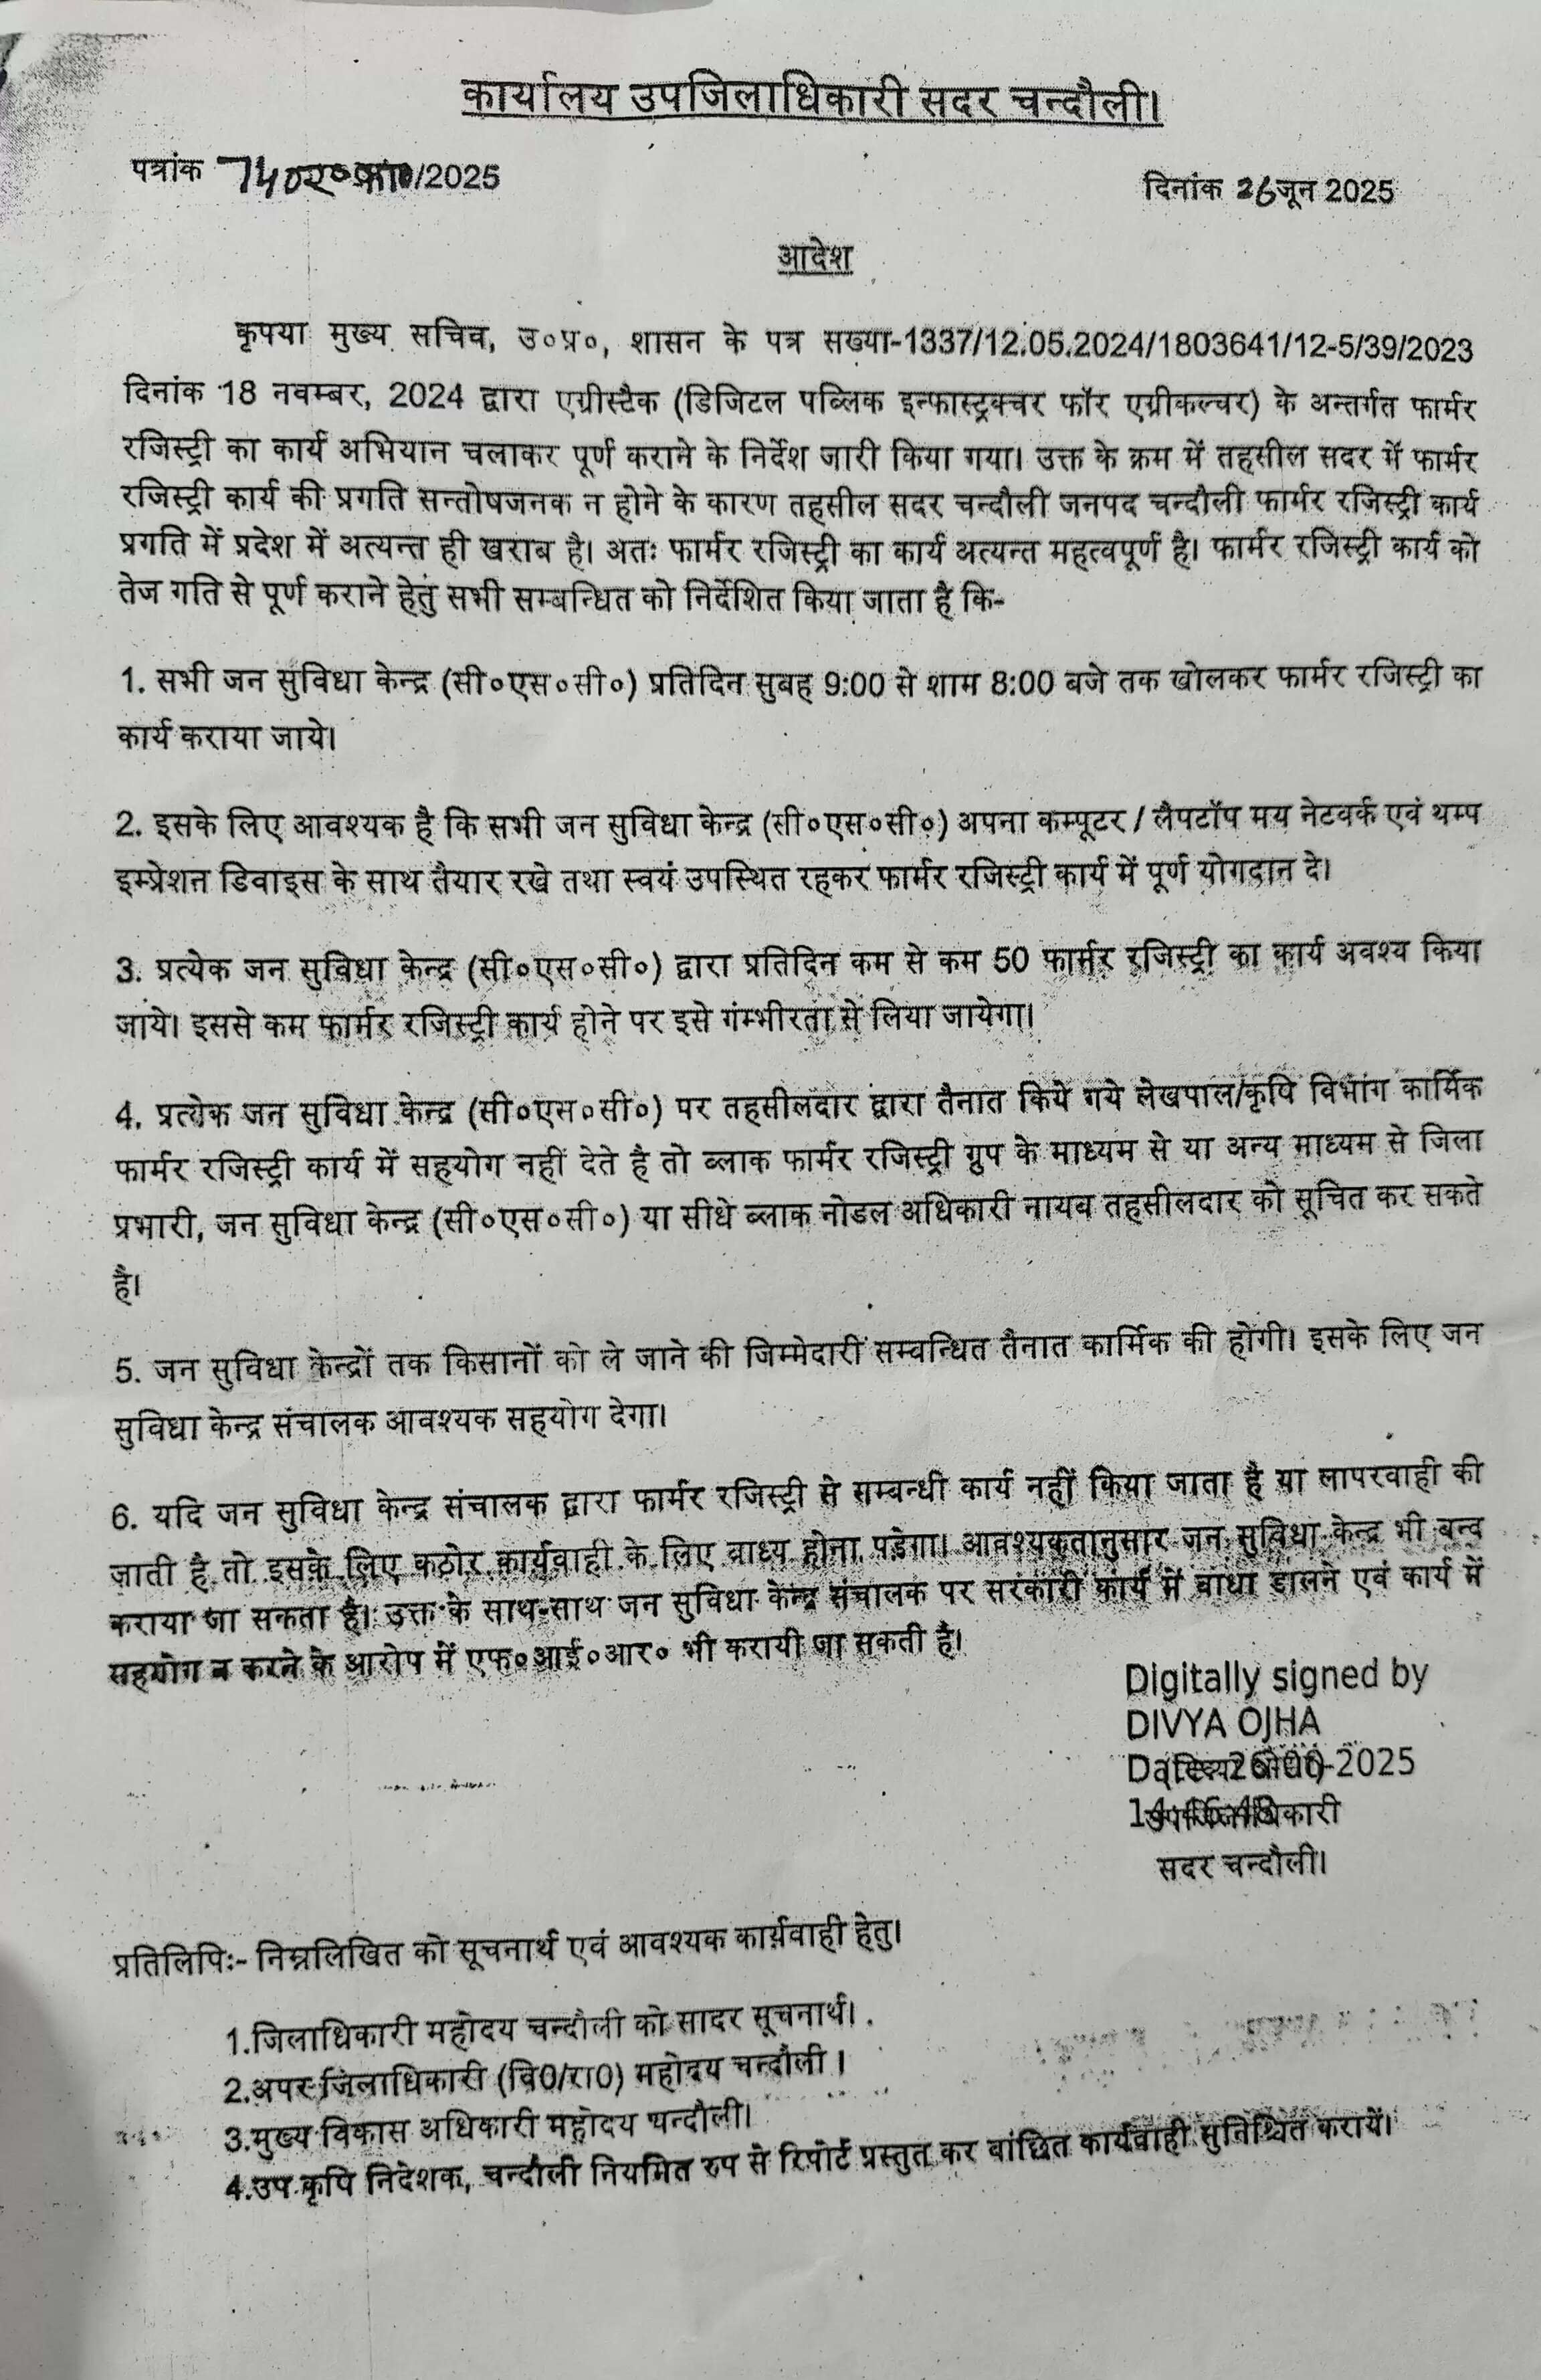 कार्यालय उपजिलाधिकारी सदर चन्दौली।
पत्रांक 740र०का०/2025
दिनांक 26जून 2025
आदेश
कृपया मुख्य सचिव, उ०प्र०, शासन के पत्र सख्या-1337/12.05.2024/1803641/12-5/39/2023
दिनांक 18 नवम्बर, 2024 द्वारा एग्रीस्टैक (डिजिटल पब्लिक इन्फास्ट्रक्चर फॉर एग्रीकल्चर) के अन्तर्गत फार्मर
रजिस्ट्री का कार्य अभियान चलाकर पूर्ण कराने के निर्देश जारी किया गया। उक्त के क्रम में तहसील सदर में फार्मर
रजिस्ट्री कार्य की प्रगति सन्तोषजनक न होने के कारण तहसील सदर चन्दौली जनपद चन्दौली फार्मर रजिस्ट्री कार्य
प्रगति में प्रदेश में अत्यन्त ही खराब है। अतः फार्मर रजिस्ट्री का कार्य अत्यन्त महत्वपूर्ण है। फार्मर रजिस्ट्री कार्य को
तेज गति से पूर्ण कराने हेतु सभी सम्बन्धित को निर्देशित किया जाता है कि-
1. सभी जन सुविधा केन्द्र (सी०एस०सी०) प्रतिदिन सुबह 9:00 से शाम 8:00 बजे तक खोलकर फार्मर रजिस्ट्री का
कार्य कराया जाये।
2. इसके लिए आवश्यक है कि सभी जन सुविधा केन्द्र (सी०एस०सी०) अपना कम्पूटर / लैपटॉप मय नेटवर्क एवं थम्प
इम्प्रेशन डिवाइस के साथ तैयार रखे तथा स्वयं उपस्थित रहकर फार्मर रजिस्ट्री कार्य में पूर्ण योगदान दे।
3. प्रत्येक जन सुविधा केन्द्र (सी०एस०सी०) द्वारा प्रतिदिन कम से कम 50 फार्मर रजिस्ट्री का कार्य अवश्य किया
जाये। इससे कम फार्मर रजिस्ट्री कार्य होने पर इसे गंम्भीरता से लिया जायेगा।
4. प्रत्येक जन सुविधा केन्द्र (सी०एस०सी०) पर तहसीलदार द्वारा तैनात किये गये लेखपाल/कृषि विभाग कार्मिक
फार्मर रजिस्ट्री कार्य में सहयोग नहीं देते है तो ब्लाक फार्मर रजिस्ट्री ग्रुप के माध्यम से या अन्य माध्यम से जिला
प्रभारी, जन सुविधा केन्द्र (सी०एस०सी०) या सीधे ब्लाक नोडल अधिकारी नायब तहसीलदार को सूचित कर सकते
है।
5. जन सुविधा केन्द्रों तक किसानों को ले जाने की जिम्मेदारी सम्बन्धित तैनात कार्मिक की होगी। इसके लिए जन
सुविधा केन्द्र संचालक आवश्यक सहयोग देगा।
6. यदि जन सुविधा केन्द्र संचालक द्वारा फार्मर रजिस्ट्री से सम्बन्धी कार्य नहीं किया जाता है या लापरवाही की
जाती है तो इसके लिए कठोर कार्यवाही के लिए वाध्य होना पडेगा। आवश्यकतानुसार जन सुविधा केन्द्र भी बन्द
कराया जा सकता है। उक्त के साथ-साथ जन सुविधा केन्द्र संचालक पर सरकारी कार्य में वाधा डालने एवं कार्य में
सहयोग न करने के आरोप में एफ०आई०आर० भी करायी जा सकती है।
Digitally signed by
DIVYA OJHA
Date: 26-06-2025
उपजिलाधिकारी
सदर चन्दौली।
प्रतिलिपिः- निम्नलिखित को सूचनार्थ एवं आवश्यक कार्यवाही हेतु।
1.जिलाधिकारी महोदय चन्दौली को सादर सूचनार्थ।
2.अपर जिलाधिकारी (वि0/रा0) महोदय चन्दौली ।
3.मुख्य विकास अधिकारी महोदय चन्दौली।
4.उप कृषि निदेशक, चन्दौली नियमित रुप से रिपोर्ट प्रस्तुत कर वांछित कार्यवाही सुनिश्चित करायें।